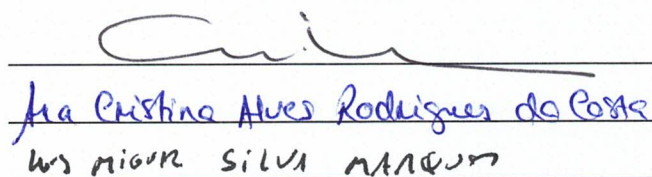 Ana Cristina Alves Rodrigues da Costa
Luis Miguel Silva Marques